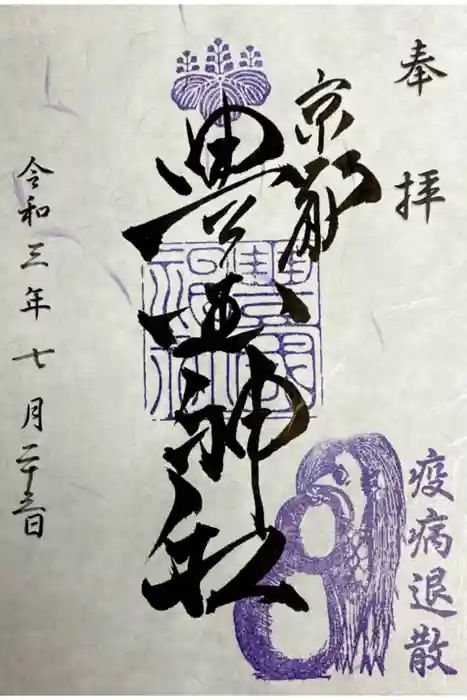 奉拝
京都
豊国神社
豊國神社
疫病退散
令和三年七月二十五日